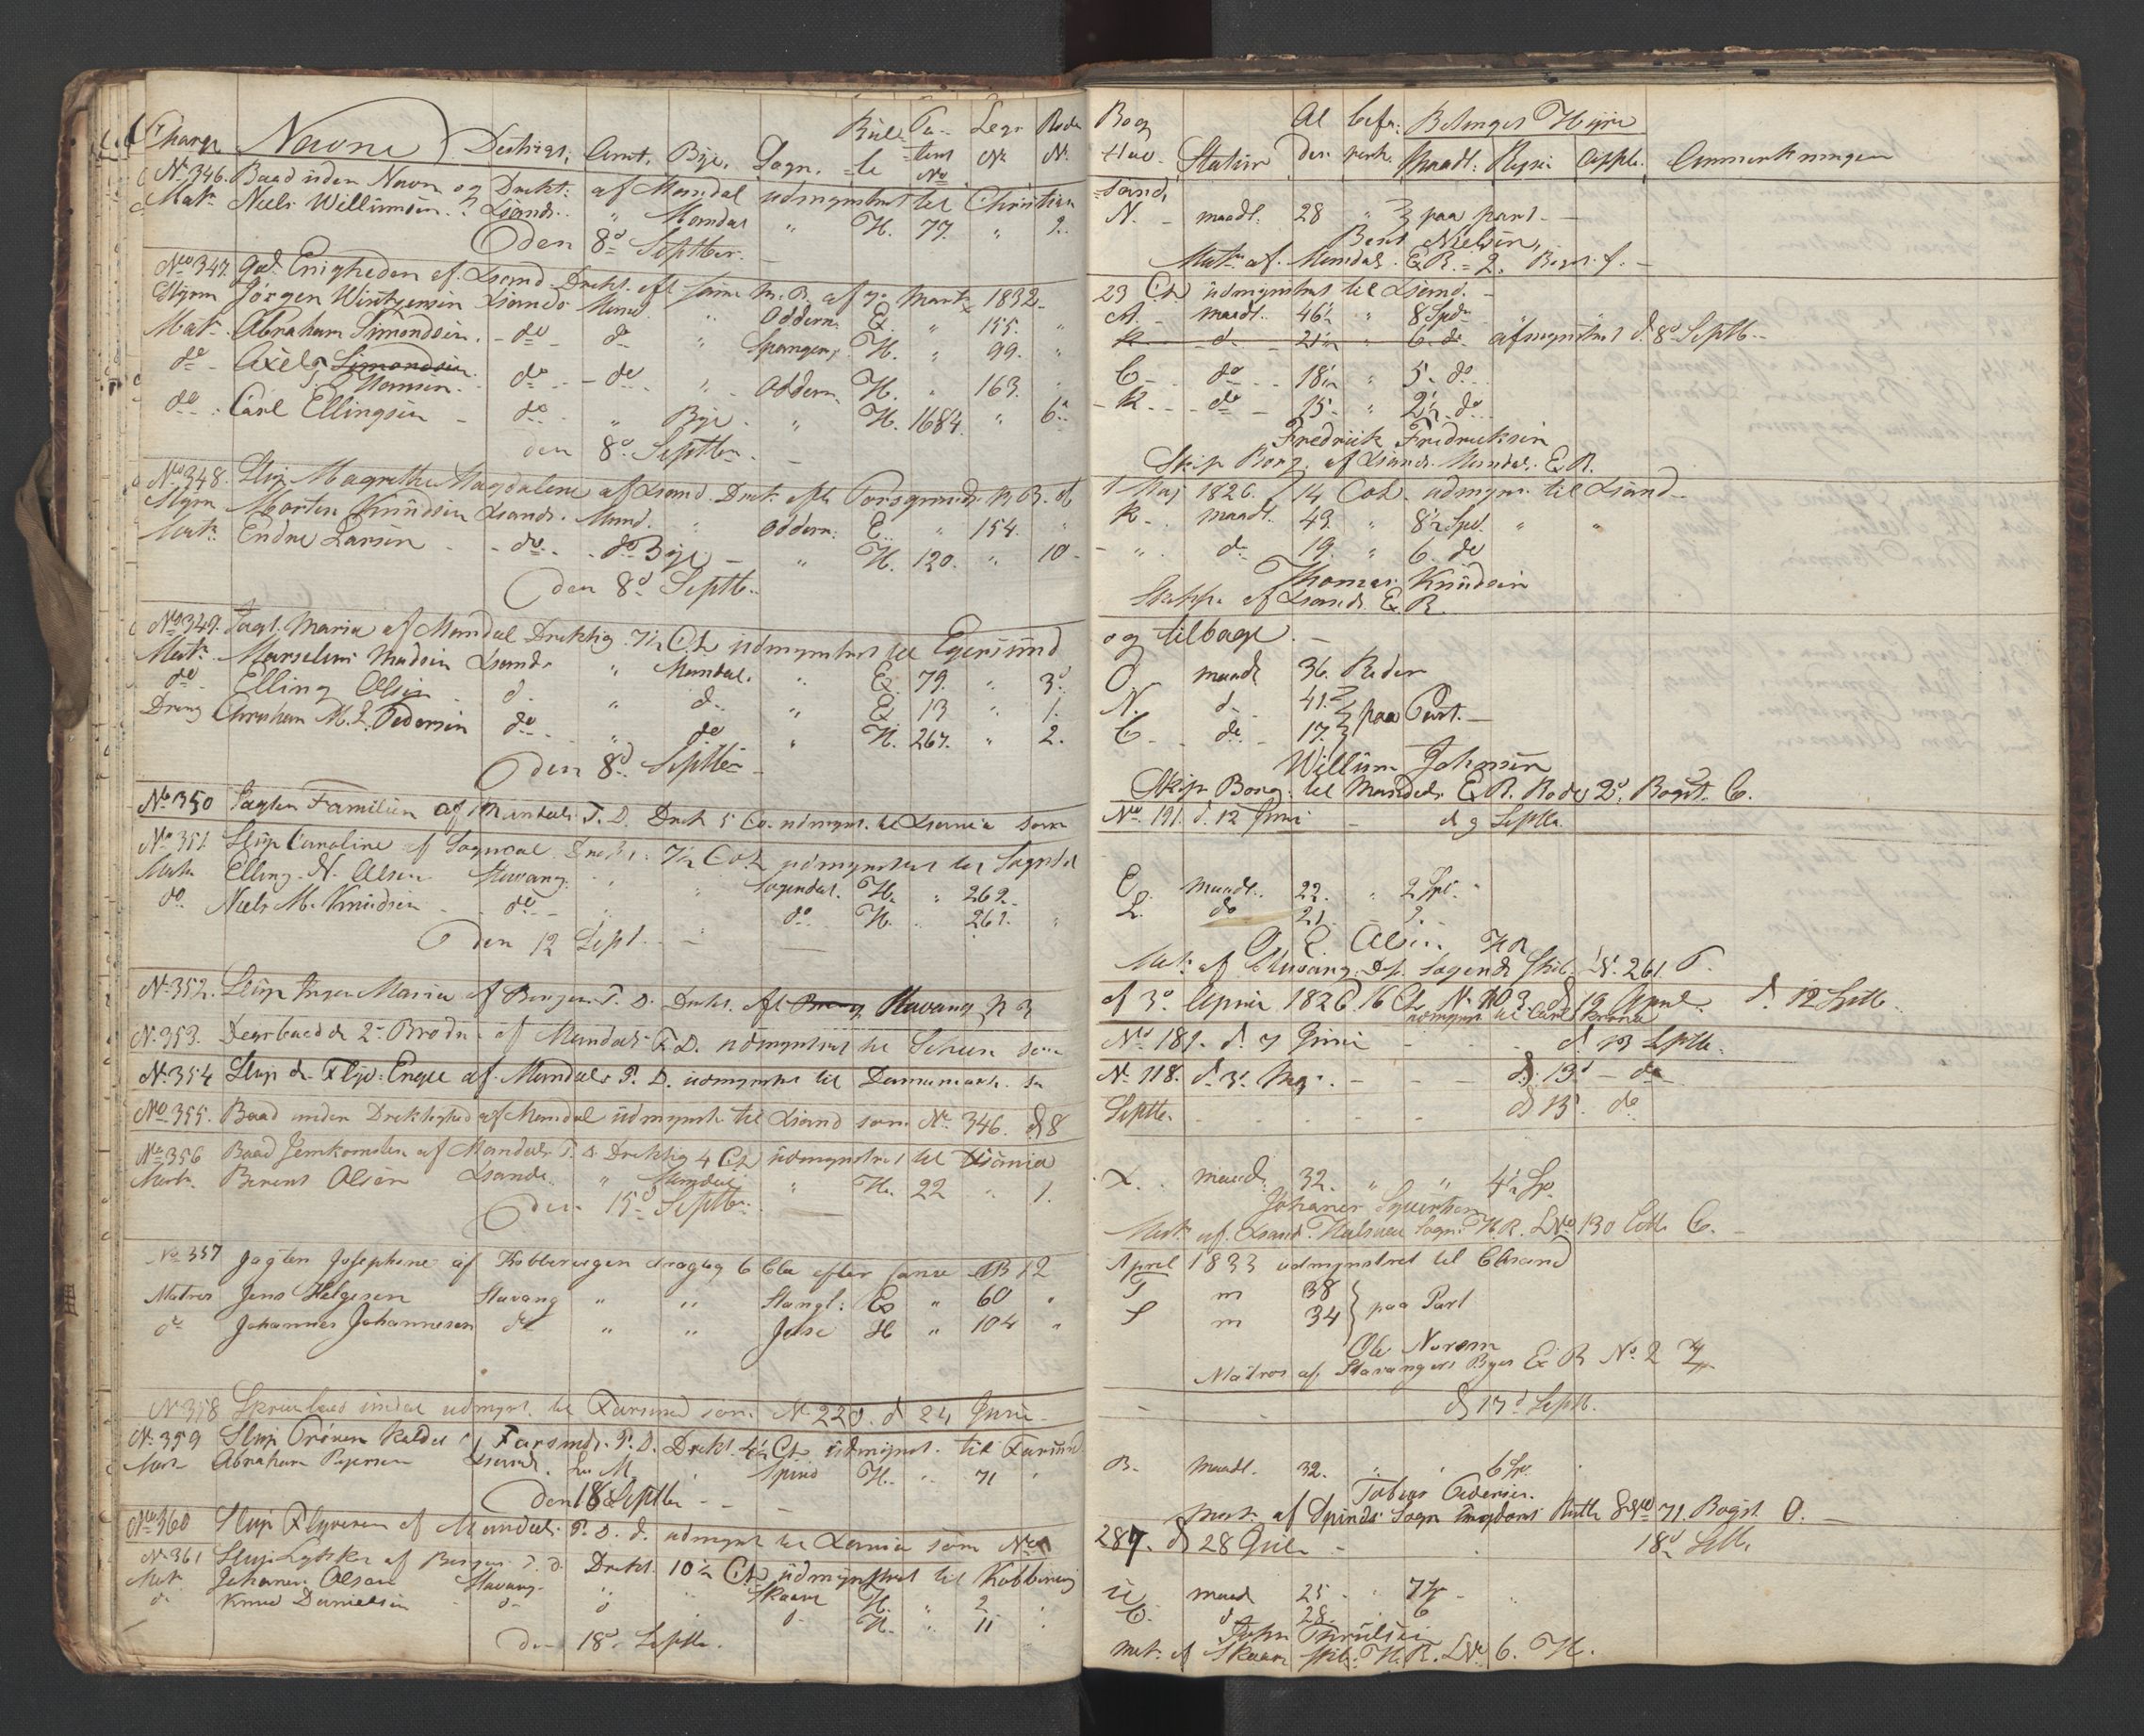 Charge Navne District, Amt. Bye. Sogn. Rul- le Pa- tent No Legs No. Rode N.
No 346. Baad uden Navn og Drekt: af Mandal udmynstret til Christian
Mat. Niels Willumsen Xsands. " Mandal " H. 77. " 2.
den 8d Septbr.
No 347. Gal. Enigheden af Xsand Drekt. eft. samme M.B. af 7 Marts 1832
Styrm Jørgen Wintzersen Xsands Mand. " Oddern. E. " 155. "
Mat. Abraham Simondsen. do d. " Spangerg. H. " 99. "
do Axels Simondsen Hansen. do do " Oddern. H. " 163. "
do Carl Ellingsen do " Bye " H. 1684. " 6
den 8d Septbr.
No 348. Slup Magrethe Magdalene af Xsand. Drekt. efter Porsgrund M.B. af
Styrm Morten Knudsen Xsands. Mand. " Oddern. E. " 154. "
Mat. Endre Larsen do. do Bye " H. 120. " 10
den 8d Septb.
No 349. Jagt. Maria af Mandal Drektig 7½ CL udmynstret til Egersund
Mat. Marselius Madsen Xsands " Mandal. " E. 79. " 3.
do Elling Olsen d. " d. " E 13 " 1.
Dreng Abraham M. L. Pedersen do " do " H. 267. " 2.
den 8d Septbr
No 350 Jagten Familien af Mandals T. D. Drek 5 Co. udmynt. til Xsania som
No 351 Slup Caroline af Sogndal Drekt. 7½ CoL udmynstret til Sogndal
Mat. Elling N. Olsen Stavang. " Sogendal. H. " 262.
do. Niels M. Knudsen do do H. 261.
den 12 Sept.
No 352. Slup Inger Maria af Bergen T. D. Drekt. eft. Stavang M B
No 353. Degsbaad de 2de Brødre af Mandals T.D. udmynstret til Scheen som
No 354 Slup d. Flyv: Engel af Mandals T. D. udmynstret til Dannemark. so
No 355. Baad uden Drektighed af Mandal udmynstr. til Xsand som No. 346. d 8
No 356 Baad Jemkomsten af Mandals T. D. Drektig 4 CL udmynstret til Xsania
Matr. Berent Olsen Xsands. " Mandal " H. 22 " 1.
den 15d Septbr.
No 357 Jagten Josephine af Kobbervigen drægtig 6 Cla efter samme MB 12
Matros Jens Helgesen Stavang " " Stangl: E " 60 "
do Johannes Johannesen do " " Jelse H " 104 "
No 358 udmynt. til Farsund som No 220. d 24 Juni
No 359 Slup Prøven kaldet af Farsunds. T. D. Drekt. 4½ CL udmynst. til Farsund
Mat. Abraham Pedersen Xsand. L. M. Spind H. 71
Den 18 Septbr
No 360 Slup Flyveren af Mandals T. D. d. udmynst til Xania som No
No 361 Slup Lykken af Bergen T. D. Drekt. 10½ CL udmynstret til Kobbervig
Mat. Johanes Olsen Stavang. " " Skaare H. " 2
d. Knud Danielsen d. d d. H. " 11
den 18d Septbr.
Bog- stav. Station Al der. befa: renh. Betinget Hyre Maadl. Reise Apple. Anmerkningen
sand,
N. maadl. 28 " paa part.
Bent Nielsen,
Matr. af Mandals E.R. 2. Bogst. f.
23 CL udmynstret til Xsand.
A. maadl. 46½ " 8 Spd
R d 21½ " 6 do afmynstret d. 8d Septb.
C. do 18½ " 5 do
R. do 25. " 2½ do
Fredrick Fredricksen
Skip Borg. af Xsands Mandals E.R.
1 Maj 1826. 14 CoL udmyns. til Xsand
R. maadl. 49. " 8½ Spd. "
" do 19. " 6. do
Thomas Knudsen
Skipp. af Xsands E. R.
og tilbage.
O maadl 36. Reder
N. d. 41.
C. do. 17. paa Part.
Willum Johnsen
Skip Borg. til Mandals E.R. Rode 2d. Bogst. C.
No 191. d. 12 Juni d 9 Septbr.
E. Maadl. 22. " 2 Spd. "
L. do 21 2.
Q Q Olsen H R
Mat. af Stavang. Dst. Sogendal skib. L N. 261. T.
af 3d April 1826 16 CL No 103 d. 19 April d. 12 Septb.
udmynst. til Carlskrona
No 189. d. 7 Juni d. 13 Septbr.
No 118. d. 3d. Maj. d. 13d do
Septbr. d 15. do
X. maadl. 32. " " 4½ Sp.
Johanes Syvertsen
Mat. af. Xsand. Halsaae Sogn H.R. LNo 130 Litt. C.
April 1833 udmynstret til Chrsand
T m 38
S m 34 } paa Part
Ole Norem
Matros af Stavangers Byes E R No 2
d 17d Septb.
B. Maadl. 32. " " 6 Sp.
Tobias Andersen.
Mat. af Spinds Sogn LNo 71. Bogst. O.
287. d 28 Juli 18d Septb.
U maad 25 " 7 Sp
C. d 28. 6
John Truelsen
Mat. af Skaare skib. H.R. LNo 6. H.